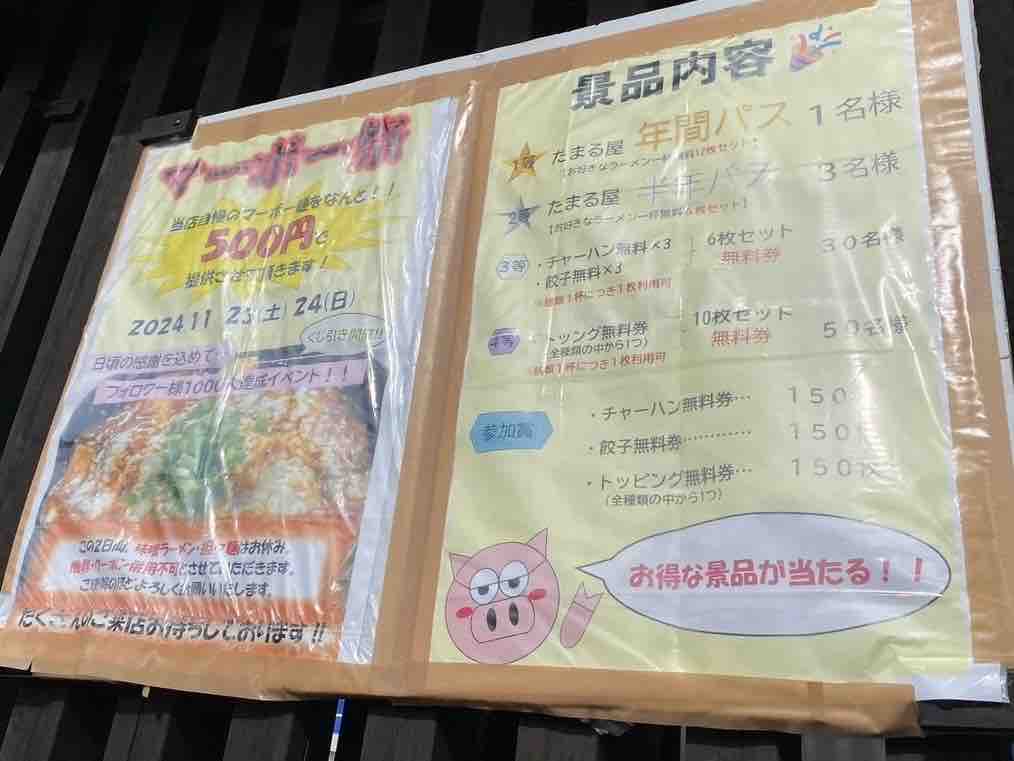 マーボー祭
当店自慢のマーボー麺をなんと！！
500円で
提供させて頂きます！
2024 11 23(土) 24(日)
くじ引き開催!!
日頃の感謝を込めて
フォロワー様1000人達成イベント！！
この2日間、味噌ラーメン・担々麺はお休み
機器・クーポン使用不可とさせていただきます。
ご理解の程よろしくお願いいたします。
たくさんのご来店お待ちしております!!
景品内容
1等 たまる屋 年間パス 1名様
【お好きなラーメン一杯無料12枚セット】
2等 たまる屋 半年パス 3名様
【お好きなラーメン一杯無料6枚セット】
3等 ・チャーハン無料×3 6枚セット 30名様
・餃子無料×3 無料券
※麺類1杯につき1枚利用可
4等 トッング無料券 10枚セット 50名様
(全種類の中から1つ) 無料券
※麺類1杯につき1枚利用可
参加賞
・チャーハン無料券… 150
・餃子無料券………… 150
・トッピング無料券… 150枚
(全種類の中から1つ)
お得な景品が当たる！！